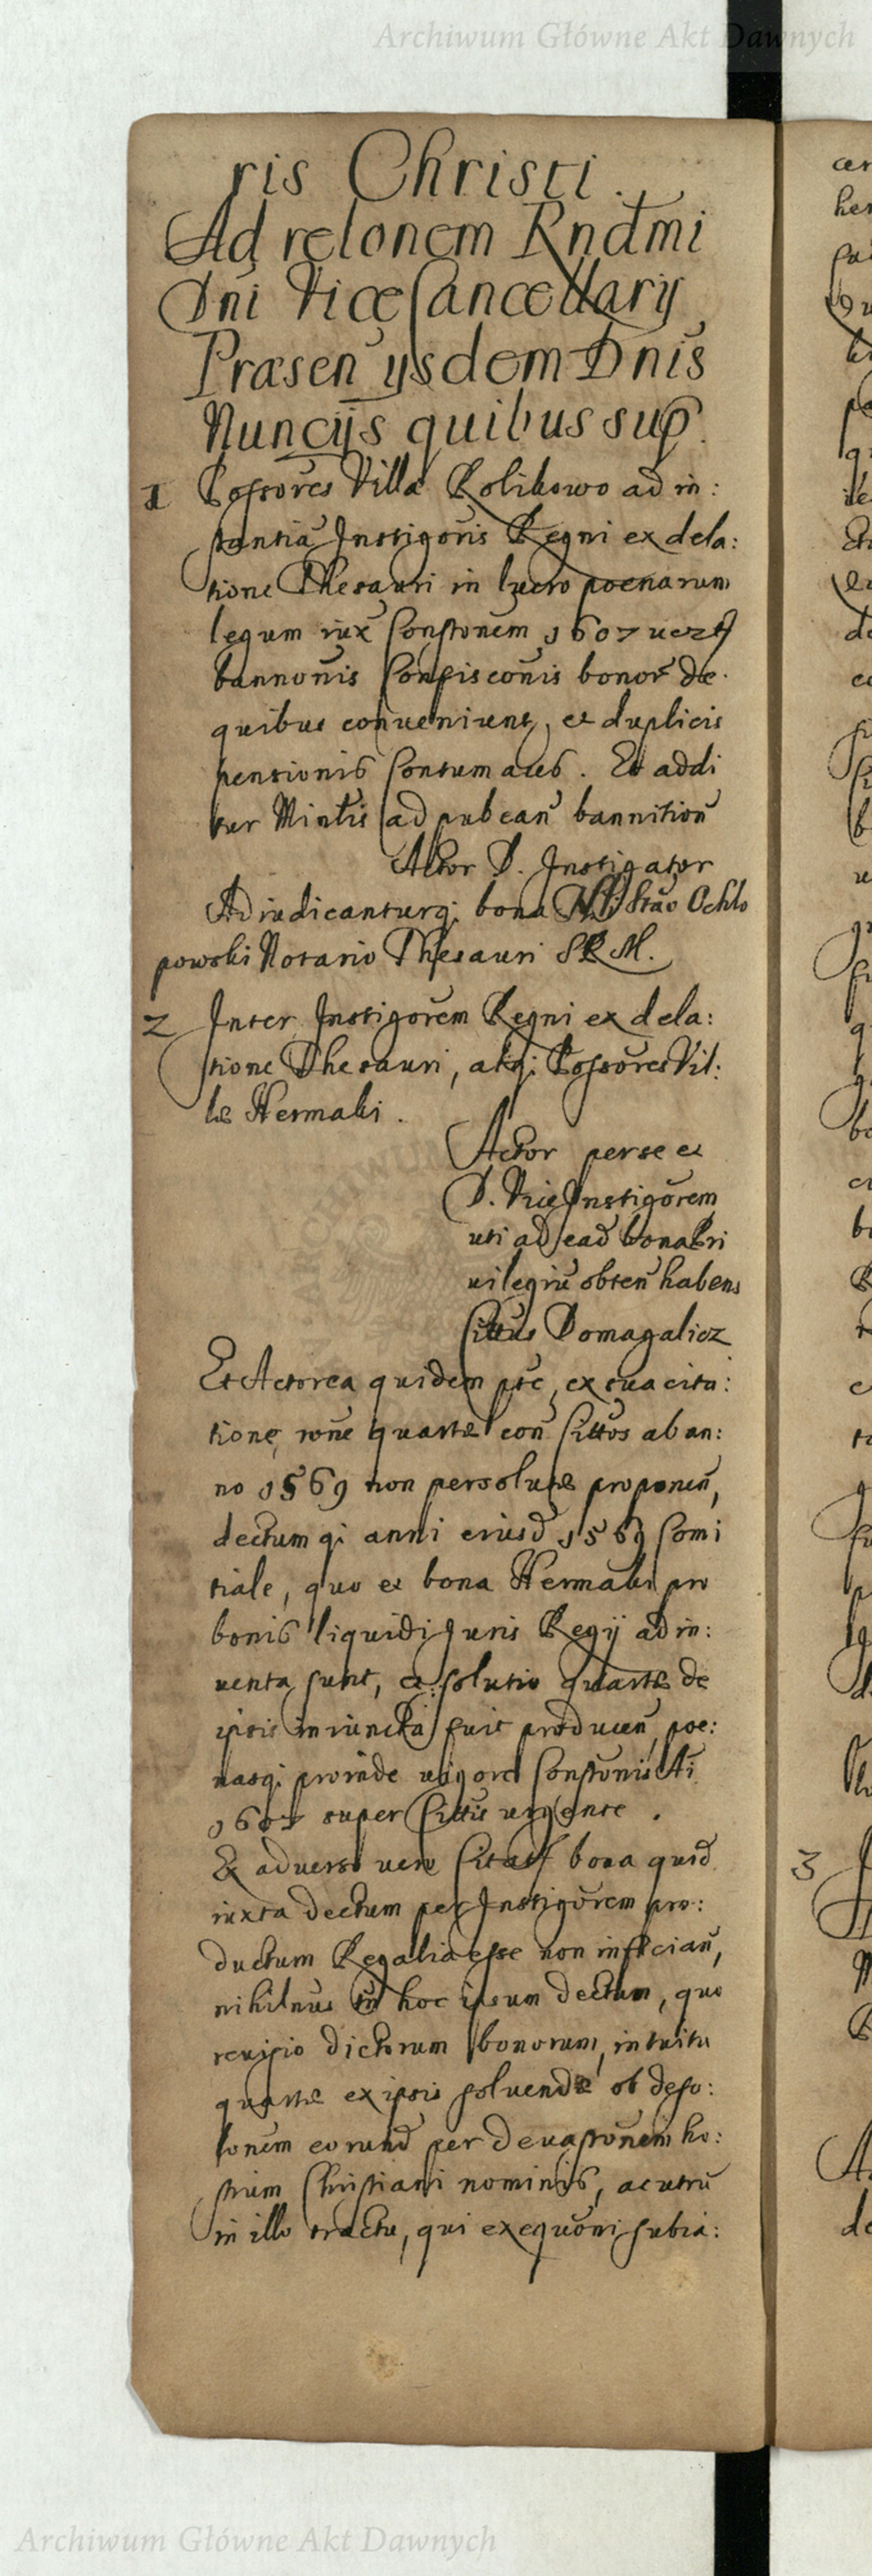 Archiwum Główne Akt Dawnych
ris Christi.
Ad relonem Rndmi
Dni Vice Cancellarij
Præsen ijsdem Dnis
Nuncijs quibus sup.
1 Possores Villæ Kolikowo ad in:
stantia Instigoris Regni ex dela:
tione Thesauri in lucro poenarum
legum iux Constonem 1607
bannonis Confisconis bonor de
quibus conveniunt, et duplicis
pensionis Contumaces. Et addi
tur Mintis ad pubcan bannition
Actor D. Instigator
Adiudicanturq; bona Stao Ochlo
powski Notario Thesauri S R M.
2 Inter Instigorem Regni ex dela:
tione Thesauri, atq; Possores Vil:
læ Hermaki.
Actor per se et
D. Vice Instigorem
uti ad ead bona Pri
vilegiu obten habens
Cittus Domagalicz
Et Actorea quidem pte, ex sua cita:
tione, rone quartæ con Cittos ab an:
no 1569 non persolutæ proponen,
dectumq; anni eiusd 1569 Comi
tiale, quo et bona Hermaki pro
bonis liquidi Juris Regij ad in:
venta sunt, et solutio quartæ de
ipsis iniuncta fuit producen, poe:
nasq; proinde vigore Constonis Ai
1607 super Cittis urgente.
Ex adverso vero bona quid
iuxta dectum per Instigorem pro:
ductum Regalia esse non infician,
nihilnus in hoc ipsum dectum, quo
revisio dictorum bonorum, intuitu
quartæ ex ipsis solvendæ ob deso:
lonem eorund per devastonem ho:
stium Christiani nominis, ac utru
in illo tractu, qui exequoni subia:
3
Archiwum Główne Akt Dawnych